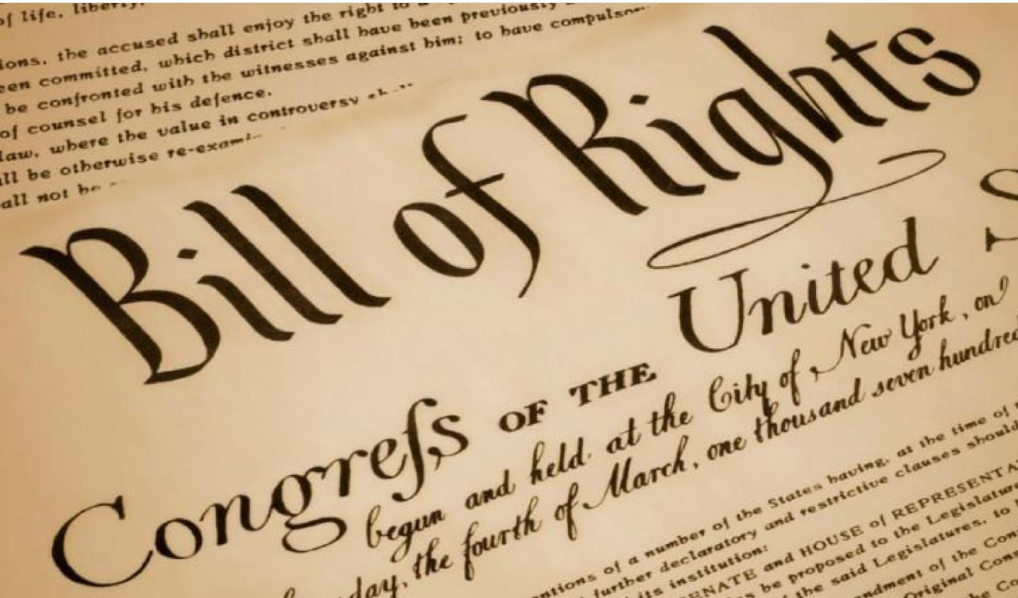 of life, liberty,
ions, the accused shall enjoy the right to a
een committed, which district shall have been previously
be confronted with the witnesses against him; to have compulsor
of counsel for his defence.
law, where the value in controversy
ll be otherwise re-exami
all not be
Bill of Rights
Congreſs OF THE United S
begun and held at the City of New York, on
day, the fourth of March, one thousand seven hundred
ntions of a number of the States having, at the time of
further declaratory and restrictive clauses should
its institution:
ENATE and HOUSE of REPRESENTA
be proposed to the Legislature
the said Legislatures, to
endment of the Con
Original Cons